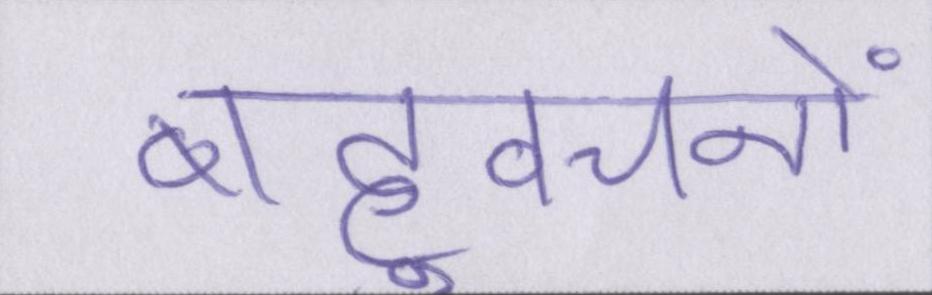 बहूवचनों